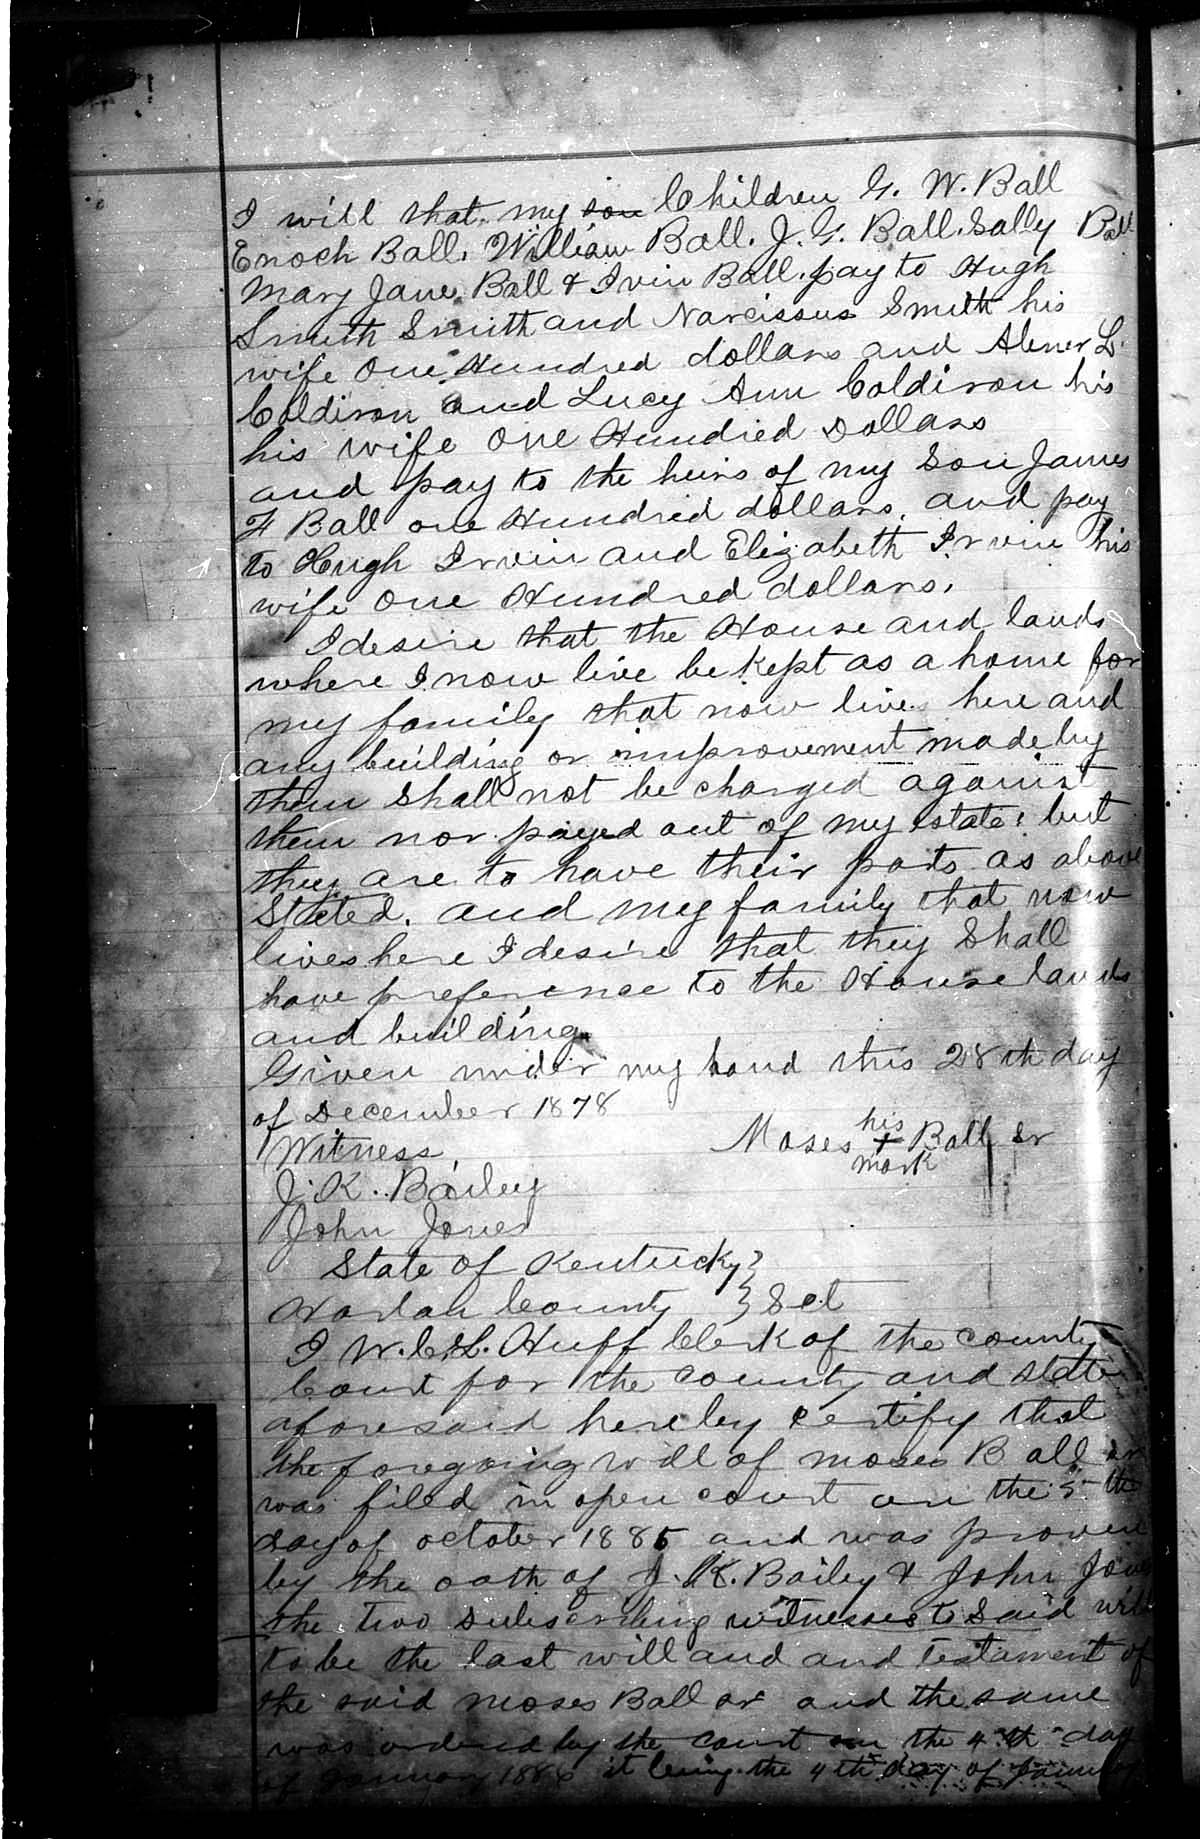 I will that my son Children G. W. Ball
Enoch Ball. William Ball. J. G. Ball. Sally Ball
Mary Jane Ball & Irvin Ball. pay to Hugh
Smith Smith and Narcissus Smith his
wife One Hundred dollars and Abner L.
Coldiron and Lucy Ann Coldiron his
his wife One Hundred Dollars
and pay to the heirs of my Son James
F Ball one Hundred dollars. and pay
to Hugh Irvin and Elizabeth Irvin his
wife One Hundred dollars.
I desire that the House and lands
where I now live be kept as a home for
my family that now live here and
any building or improvement made by
them shall not be charged against
them nor payed out of my state: but
they are to have their parts as above
Stated. and my family that now
lives here I desire that they Shall
have preference to the House lands
and building.
Given under my hand this 28th day
of December 1878
Witness, Moses his + mark Ball Sr
J. K. Bailey
John Jones
State of Kentucky }
Harlan County } Sct
I W. C. L. Huff Clerk of the county
Court for the county and state
aforesaid hereby certify that
the foregoing will of Moses Ball sr
was filed in open court on the 5th
day of october 1885 and was proven
by the oath of J. K. Bailey & John Jones
the two subscribing witnesses to said will
to be the last will and and Testament of
the said Moses Ball sr and the same
was ordered by the court on the 4th day
of January 1886 it being the 4th day of January